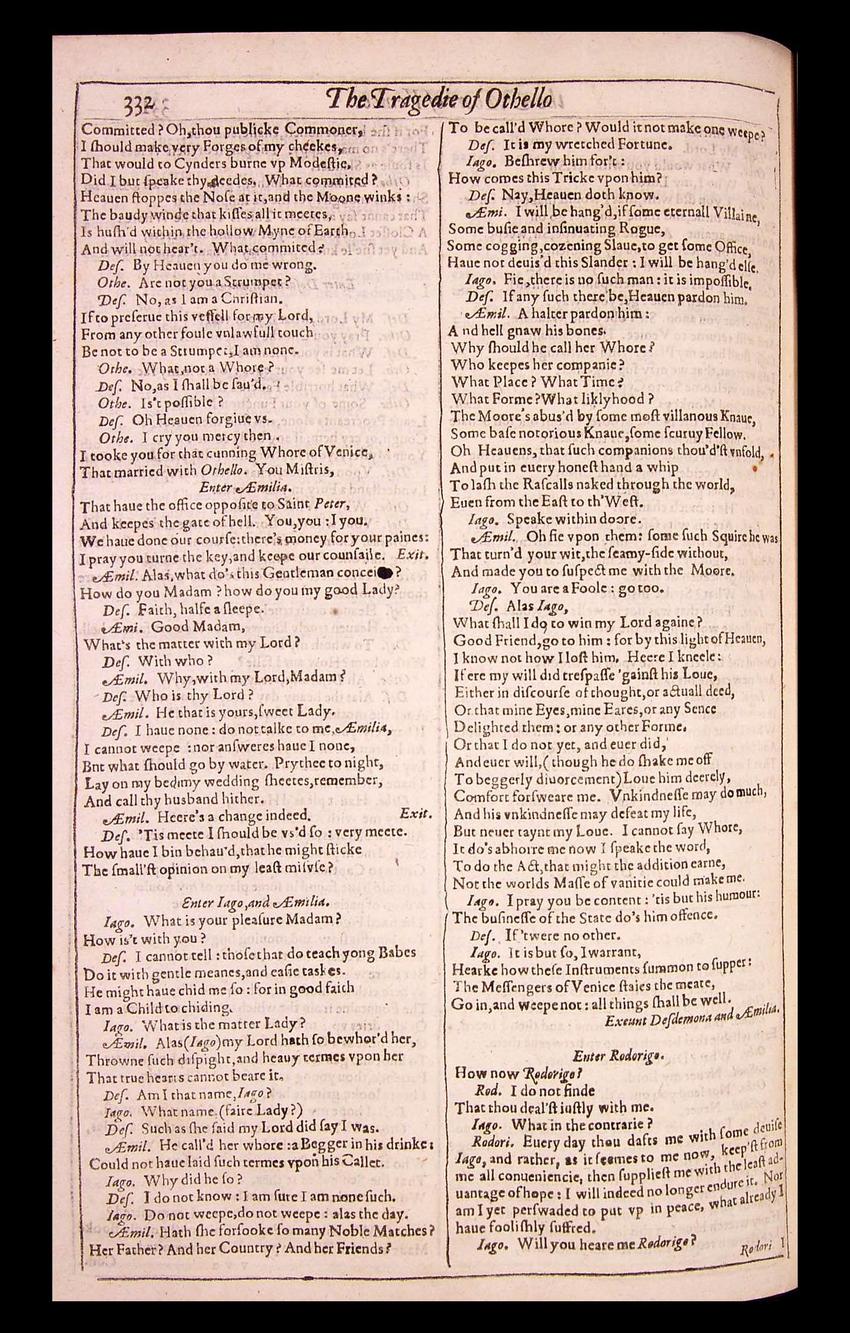 332
The Tragedie of Othello
Committed? Oh, thou publicke Commoner,
I ſhould make very Forges of my cheekes,
That would to Cynders burne vp Modeſtie,
Did I but ſpeake thy deedes. What commited?
Heauen ſtoppes the Noſe at it, and the Moone winks:
The baudy winde that kiſſes all it meetes,
Is huſh'd within the hollow Myne of Earth
And will not hear't. What commited?
Deſ. By Heauen you do me wrong.
Othe. Are not you a Strumpet?
Deſ. No, as I am a Chriſtian.
If to preſerue this veſſell for my Lord,
From any other foule vnlawfull touch
Be not to be a Strumpet, I am none.
Othe. What, not a Whore?
Deſ. No, as I ſhall be ſau'd.
Othe. Is't poſſible?
Deſ. Oh Heauen forgiue vs.
Othe. I cry you mercy then.
I tooke you for that cunning Whore of Venice,
That married with Othello. You Miſtris,
Enter Æmilia.
That haue the office oppoſite to Saint Peter,
And keepes the gate of hell. You, you: I you.
We haue done our courſe: there's money for your paines:
I pray you turne the key, and keepe our counſaile. Exit.
Æmil. Alas, what do's this Gentleman ?
How do you Madam? how do you my good Lady?
Deſ. Faith, halfe a ſleepe.
Æmi. Good Madam,
What's the matter with my Lord?
Deſ. With who?
Æmil. Why, with my Lord, Madam?
Deſ. Who is thy Lord?
Æmil. He that is yours, ſweet Lady.
Deſ. I haue none: do not talke to me, Æmilia,
I cannot weepe: nor anſweres haue I none,
But what ſhould go by water. Prythee to night,
Lay on my bed my wedding ſheetes, remember,
And call thy husband hither.
Æmil. Heere's a change indeed. Exit.
Deſ. 'Tis meete I ſhould be vs'd ſo: very meete.
How haue I bin behau'd, that he might ſticke
The ſmall'ſt opinion on my leaſt miſvſe?
Enter Iago, and Æmilia.
Iago. What is your pleaſure Madam?
How is't with you?
Deſ. I cannot tell: thoſe that do teach yong Babes
Do it with gentle meanes, and eaſie taskes.
He might haue chid me ſo: for in good faith
I am a Child to chiding.
Iago. What is the matter Lady?
Æmil. Alas (Iago) my Lord hath ſo bewhor'd her,
Throwne ſuch diſpight, and heauy termes vpon her
That true hearts cannot beare it.
Deſ. Am I that name, Iago?
Iago. What name, (faire Lady?)
Deſ. Such as ſhe ſaid my Lord did ſay I was.
Æmil. He call'd her whore: a Begger in his drinke:
Could not haue laid ſuch termes vpon his Callet.
Iago. Why did he ſo?
Deſ. I do not know: I am ſure I am none ſuch.
Iago. Do not weepe, do not weepe: alas the day.
Æmil. Hath ſhe forſooke ſo many Noble Matches?
Her Father? And her Country? And her Friends?
To be call'd Whore? Would it not make one weepe?
Deſ. It is my wretched Fortune.
Iago. Beſhrew him for't:
How comes this Tricke vpon him?
Deſ. Nay, Heauen doth know.
Æmi. I will be hang'd, if ſome eternall Villaine,
Some buſie and inſinuating Rogue,
Some cogging, cozening Slaue, to get ſome Office,
Haue not deuis'd this Slander: I will be hang'd elſe.
Iago. Fie, there is no ſuch man: it is impoſſible.
Deſ. If any ſuch there be, Heauen pardon him.
Æmil. A halter pardon him:
And hell gnaw his bones.
Why ſhould he call her Whore?
Who keepes her companie?
What Place? What Time?
What Forme? What liklyhood?
The Moore's abus'd by ſome moſt villanous Knaue,
Some baſe notorious Knaue, ſome ſcuruy Fellow.
Oh Heauens, that ſuch companions thou'd'ſt vnfold,
And put in euery honeſt hand a whip
To laſh the Raſcalls naked through the world,
Euen from the Eaſt to th'Weſt.
Iago. Speake within doore.
Æmil. Oh fie vpon them: ſome ſuch Squire he was
That turn'd your wit, the ſeamy-ſide without,
And made you to ſuſpect me with the Moore.
Iago. You are a Foole: go too.
Deſ. Alas Iago,
What ſhall I do to win my Lord againe?
Good Friend, go to him: for by this light of Heauen,
I know not how I loſt him. Heere I kneele:
If ere my will did treſpaſſe 'gainſt his Loue,
Either in diſcourſe of thought, or actuall deed,
Or that mine Eyes, mine Eares, or any Sence
Delighted them: or any other Forme.
Or that I do not yet, and euer did,
And euer will, (though he do ſhake me off
To beggerly diuorcement) Loue him deerely,
Comfort forſweare me. Vnkindneſſe may do much,
And his vnkindneſſe may defeat my life,
But neuer taynt my Loue. I cannot ſay Whore,
It do's abhorre me now I ſpeake the word,
To do the Act, that might the addition earne,
Not the worlds Maſſe of vanitie could make me.
Iago. I pray you be content: 'tis but his humour:
The buſineſſe of the State do's him offence.
Deſ. If 'twere no other.
Iago. It is but ſo, I warrant,
Hearke how theſe Inſtruments ſummon to ſupper:
The Meſſengers of Venice ſtaies the meate,
Go in, and weepe not: all things ſhall be well.
Exeunt Deſdemona and Æmilia.
Enter Rodorigo.
How now Rodorigo?
Rod. I do not finde
That thou deal'ſt iuſtly with me.
Iago. What in the contrarie?
Rodori. Euery day thou dafts me with ſome deuiſe
Iago, and rather, as it ſeemes to me now, keep'ſt from
me all conueniencie, then ſupplieſt me with the leaſt ad-
uantage of hope: I will indeed no longer endure it. Nor
am I yet perſwaded to put vp in peace, what already I
haue fooliſhly ſuffred.
Iago. Will you heare me Rodorigo?
Rodori I